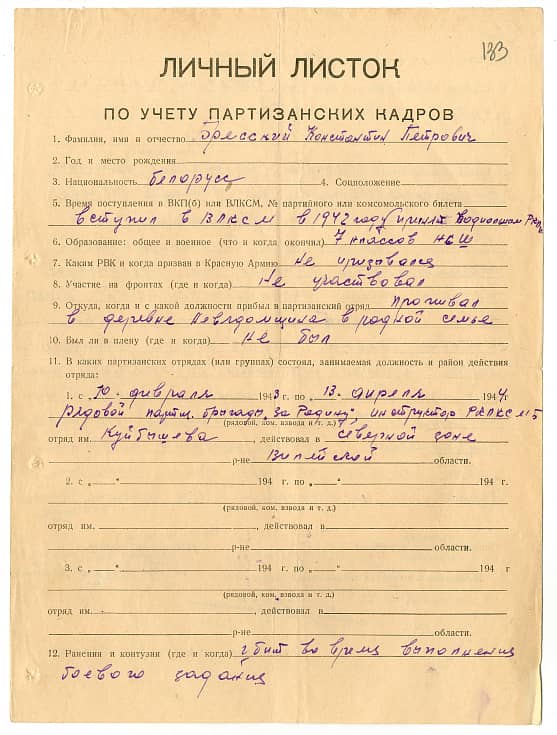 133
ЛИЧНЫЙ ЛИСТОК
ПО УЧЕТУ ПАРТИЗАНСКИХ КАДРОВ
1. Фамилия, имя и отчество Бресский Константин Петрович
2. Год и место рождения
3. Национальность белорусс 4. Соцположение
5. Время поступления в ВКП(б) или ВЛКСМ, № партийного или комсомольского билета
вступил в ВЛКСМ в 1942 году (принят
6. Образование: общее и военное (что и когда окончил) 7 классов НСШ
7. Каким РВК и когда призван в Красную Армию Не призывался
8. Участие на фронтах (где и когда) Не участвовал
9. Откуда, когда и с какой должности прибыл в партизанский отряд Проживал
в деревне в родной семье
10. Был ли в плену (где и когда) Не был
11. В каких партизанских отрядах (или группах) состоял, занимаемая должность и район действия
отряда:
1. с „10“ февраля 1943 г. по „13“ апреля 1944 г.
рядовой парт. бригады „За Родину“, инструктор РК ЛКСМБ
(рядовой, ком. взвода и т. д.)
отряд им. Куйбышева, действовал в северной зоне
р-не Вилейской области.
2. с „ “ 194 г. по „ “ 194 г.
(рядовой, ком. взвода и т. д.)
отряд им. , действовал в
р-не области.
3. с „ “ 194 г. по „ “ 194 г
(рядовой, ком. взвода и т. д.)
отряд им. , действовал в
р-не области.
12. Ранения и контузии (где и когда) убит во время выполнения
боевого задания